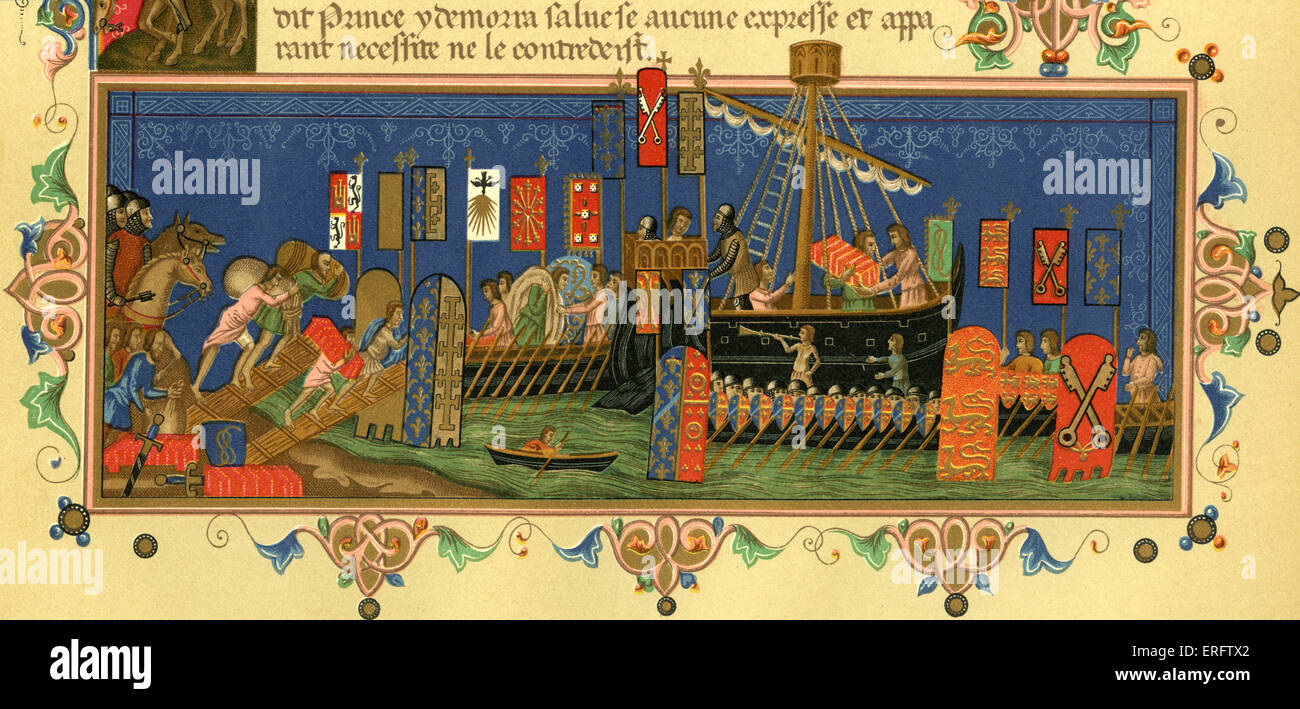 dit Prince ydemorra saluese aucune expresse et appa
rant necessite ne le contrederist.
alamy
alamy
Image ID: ERFTX2
www.alamy.com